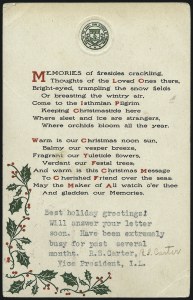 MEMORIES of firesides crackling,
Thoughts of the Loved Ones there,
Bright-eyed, trampling the snow fields
Or breasting the wintry air,
Come to the Isthmian Pilgrim
Keeping Christmastide here
Where sleet and ice are strangers,
Where orchids bloom all the year.
WARM is our Christmas noon sun,
Balmy our vesper breeze,
Fragrant our Yuletide flowers,
Verdant our Festal trees,
And warm is this Christmas Message
To Cherished Friend over the seas
May the Maker of All watch o'er thee
And gladden our Memories.
Best holiday greetings;
Will answer your letter
soon. Have been extremely
busy for past several
months. R.S.Carter,
Vice President, I.L.